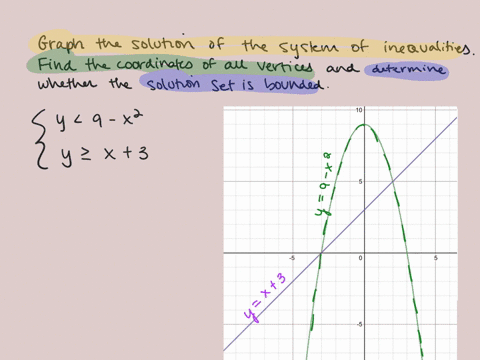 Graph the solution of the system of inequalities.
Find the coordinates of all vertices and determine
whether the solution set is bounded.
y < 9 - x²
y ≥ x + 3
y = 9 - x²
y = x + 3
10
5
-5
5
-5